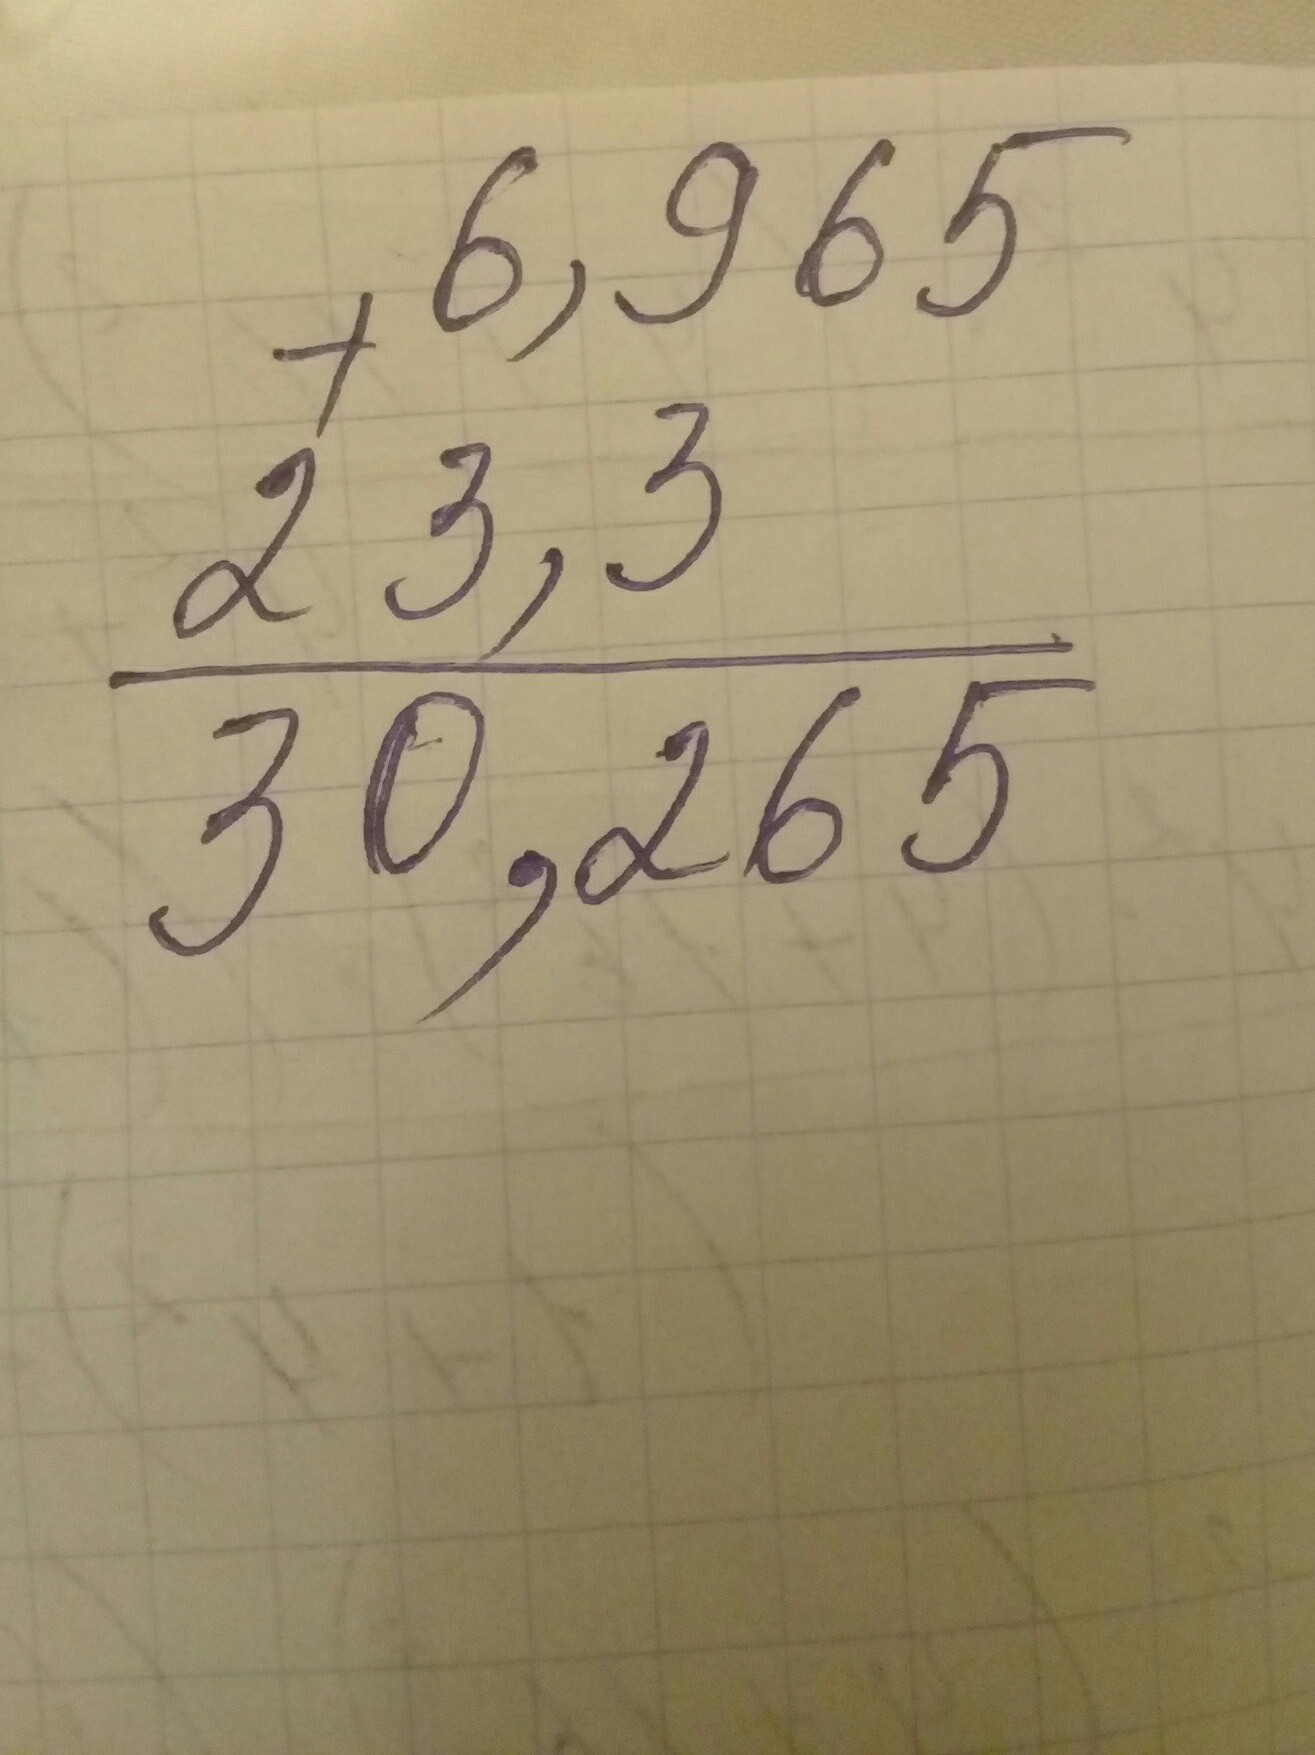 6,965
+
23,3
30,265